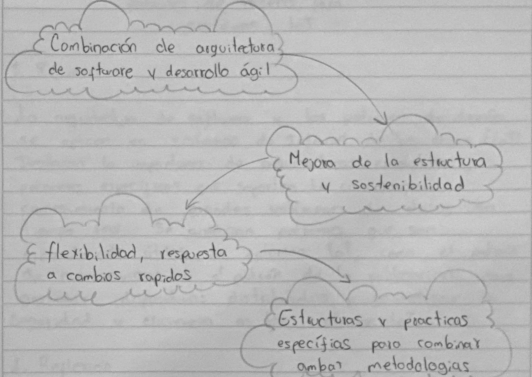 Combinación de arquitectura
de software y desarrollo ágil
Mejora de la estructura
y sostenibilidad
flexibilidad, respuesta
a cambios rapidos
Estructuras y practicas
específias para combinar
ambas metodologias